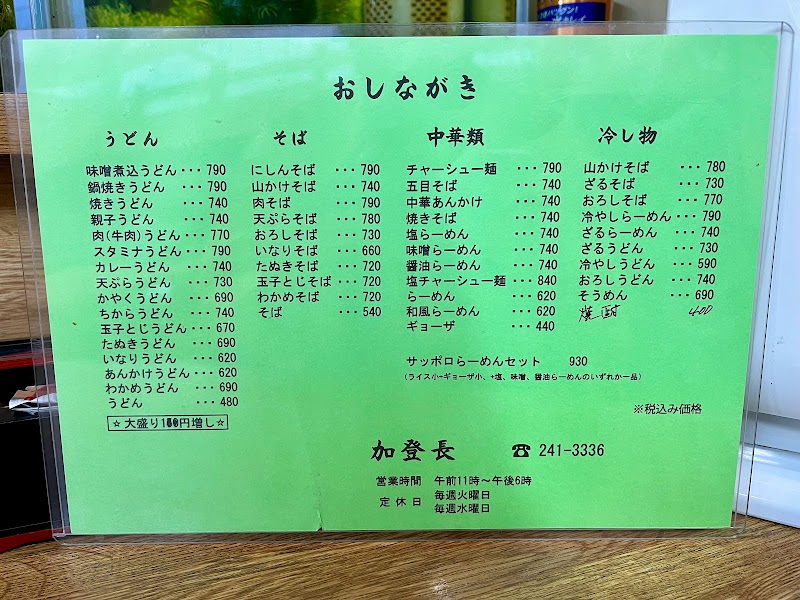 おしながき
うどん
味噌煮込うどん･･･790
鍋焼きうどん ･･･790
焼きうどん ･･･740
親子うどん ･･･740
肉(牛肉)うどん･･･770
スタミナうどん ･･･790
カレーうどん ･･･740
天ぷらうどん ･･･730
かやくうどん ･･･690
ちからうどん ･･･740
玉子とじうどん･･･670
たぬきうどん ･･･690
いなりうどん ･･･620
あんかけうどん･･･620
わかめうどん ･･･690
うどん ･･･480
☆大盛り100円増し☆
そば
にしんそば ･･･790
山かけそば ･･･740
肉そば ･･･790
天ぷらそば ･･･780
おろしそば ･･･730
いなりそば ･･･660
たぬきそば ･･･720
玉子とじそば･･･720
わかめそば ･･･720
そば ･･･540
中華類
チャーシュー麺 ･･･790
五目そば ･･･740
中華あんかけ ･･･740
焼きそば ･･･740
塩らーめん ･･･740
味噌らーめん ･･･740
醤油らーめん ･･･740
塩チャーシュー麺･･･840
らーめん ･･･620
和風らーめん ･･･620
ギョーザ ･･･440
サッポロらーめんセット 930
(ライス小+ギョーザ小、+塩、味噌、醤油らーめんのいずれか一品)
冷し物
山かけそば ･･･780
ざるそば ･･･730
おろしそば ･･･770
冷やしらーめん･･･790
ざるらーめん ･･･740
ざるうどん ･･･730
冷やしうどん ･･･590
おろしうどん ･･･740
そうめん ･･･690
焼酎 400
※税込み価格
加登長 ☎ 241-3336
営業時間 午前11時～午後6時
定休日 毎週火曜日
毎週水曜日